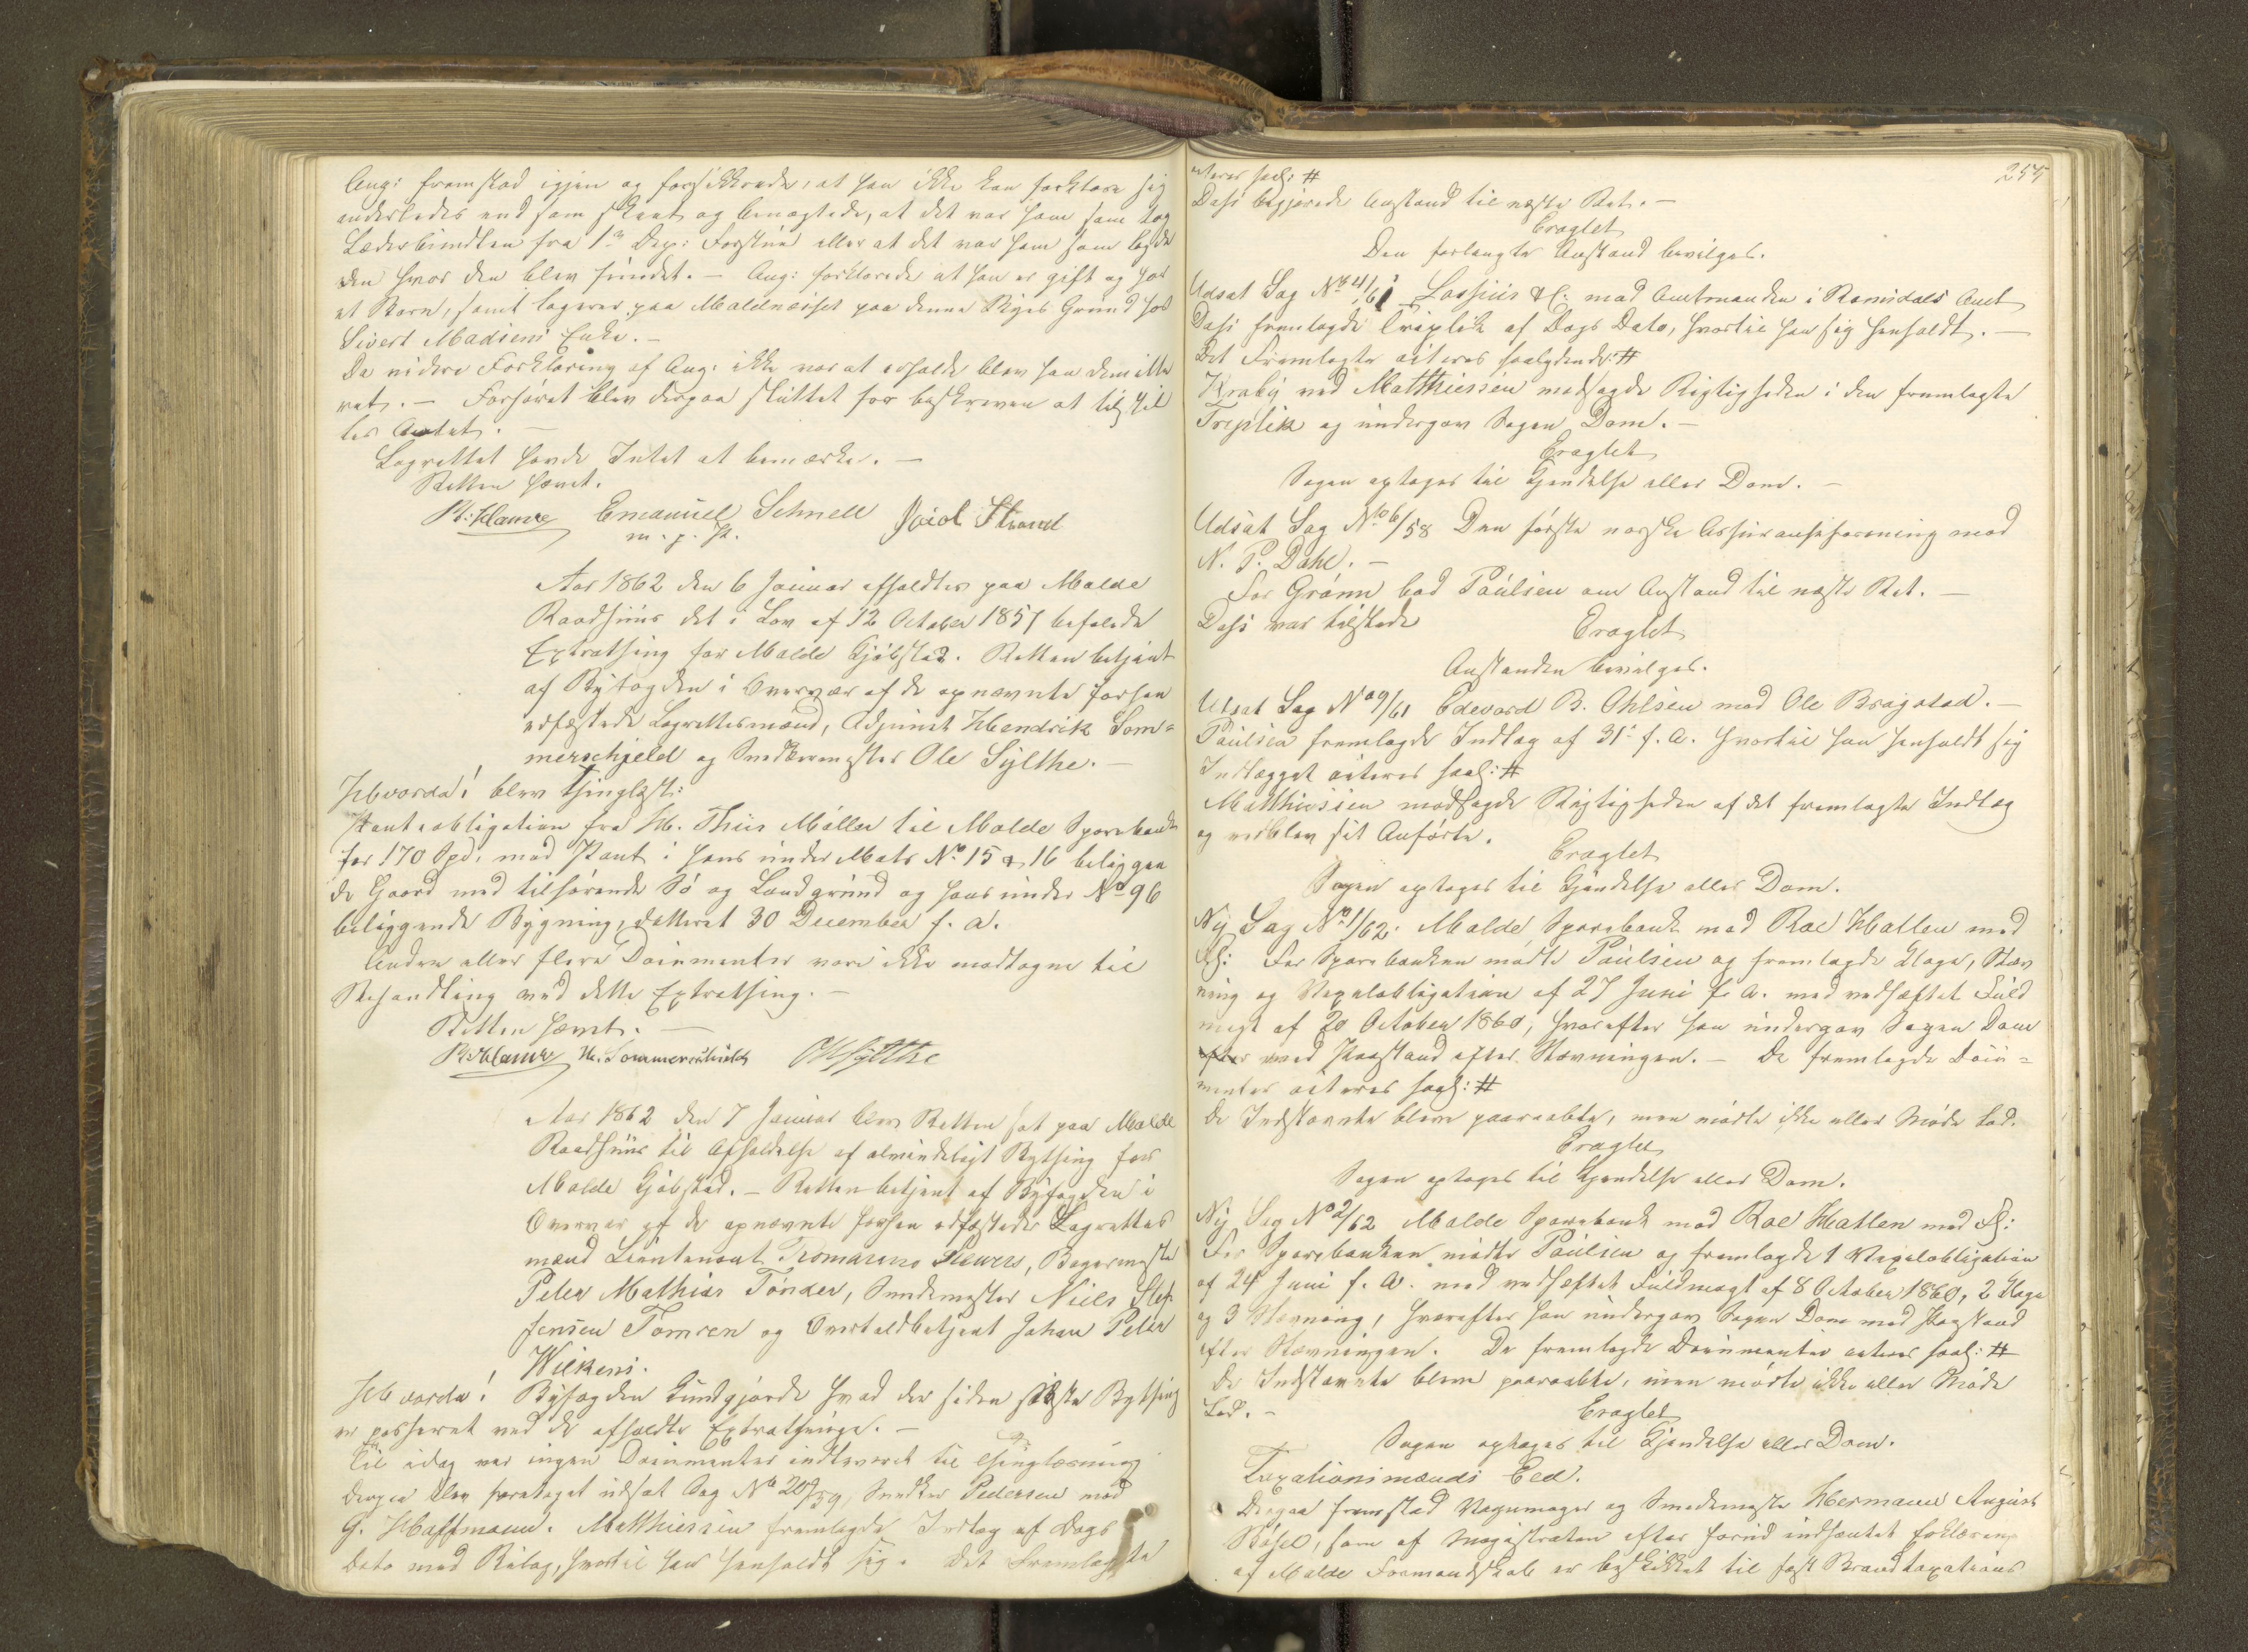 Ang: fremstod igjen og forsikkrede, at han ikke kan forklare sig
anderledes end som skeet og benægtede, at det var ham som tog
Læderbundten fra 1ste Dep: Forstue eller at det var ham som lagde
den hvor den blev fundet. – Ang: forklarede at han er gift og har
et Barn, samt logerer paa Moldenæsset paa denne Byes Grund hos
Sivert Madsens Enke. –
Da videre Forklaring af Ang: ikke var at erholde blev han demitte
ret. – Forhøret blev derpaa sluttet for beskreven at tilstil
les Amtet. –
Lagrettet havde Intet at bemærke. –
Retten hævet.
Emanuel Schnell Strand
m. p. P.
Aar 1862 den 6 Januar afholdtes paa Molde
Raadhuus det i Lov af 12 October 1857 befalede
Extrathing for Molde Kjøbstad. Retten betjent
af Byfogden i Overvær af de opnævnte forhen
edfæstede Lagrettesmænd, Adjunct Hendrik Som=
merschjeld og Snedkermester Ole Sylthe. –
Hvorda! blev thinglæst:
Panteobligation fra H. Thiis Møller til Molde Sparebank
for 170 Spd. med Pant i hans under Matr No 15 & 16 beliggen
de Gaard med tilhørende Sø og Landgrund og hans under No 96
beliggende Bygning, datteret 30 December f. a.
Andre eller flere Documenter vare ikke modtagne til
Behandling ved dette Extrathing. –
Retten hævet. –
H. Sommerschield OHSylthe
Aar 1862 den 7 Januar blev Retten sat paa Molde
Raadhuus til Afholdelse af almindeligt Bything for
Molde Kjøbstad. – Retten betjent af Byfogden i
Overvær af de opnævnte forhen edfæstede Lagrettes
mænd Lieutenant Sievers, Bagermester
Peter Mathias Tønder, Smedemester Niels Stef
fensen Tomren og Overtoldbetjent Johan Peter
Wilkens.
Hvorda! Byfogden kundgjorde hvad der siden sidste Bything
er passeret ved de afholdte Extrathinge. –
Til idag var ingen Documenter indleveret til Thinglæsning
derpaa blev foretaget udsat Sag No 20/59, Snedker Pedersen mod
G. Hoffmann. Matthiessen fremlagde Indlæg af Dags
Dato med Bilag, hvortil han henholdt sig. Det Fremlagte
255
acteres saal: #
Dass begjærede Anstand til næste Ret. –
Eragtet
Den forlangte Anstand bevilges.
Udsat Sag No 4/61 Lossius &C: mod Amtmanden i Romsdals Amt
Dass fremlagde Triplik af Dags Dato, hvortil han sig henholdt. –
Det Fremlagte acteres saalydende: #
Kraby ved Matthiessen modsagde Rigtigheden i den fremlagte
Triplik og undergav Sagen Dom. –
Eragtet
Sagen optages til Kjendelse eller Dom. –
Udsat Sag No 6/58 Den første norske Assuranceforening mod
N. P. Dahl. –
For Grønn bad Paulsen om Anstand til næste Ret. –
Dass var tilstede
Eragtet
Anstanden bevilges.
Udsat Sag No 9/61 Edevard B. Ohlsen mod Ole Bragstad. –
Paulsen fremlagde Indlæg af 31te f. A. hvortil han henholdt sig
Indlægget acteres saal: #
Matthiessen modsagde Rigtigheden af det fremlagte Indlæg
og vedblev sit Anførte.
Eragtet
Sagen optages til Kjendelse eller Dom.
Ny Sag No 1/62. Molde Sparebank mod Roe Hatlen med
Fl: For Sparebanken mødte Paulsen og fremlagde Klage, Stæv
ning og Vexelobligation af 27 Juni f. A. med vedhæftet Fuld
magt af 20 October 1860, hvorefter han undergav Sagen Dom
efter med Paastand efter Stævningen. – De fremlagde Docu=
menter acteres saal: #
De Indstævnte bleve paaraabte, men mødte ikke eller Møde lod.
Eragtet
Sagen optages til Kjendelse eller Dom.
Ny Sag No 2/62 Molde Sparebank mod Roe Hatlen med Fl:
For Sparebanken mødte Paulsen og fremlagde 1 Vexelobligation
af 24 Juni f. A. med vedhæftet Fuldmagt af 8 October 1860, 2 Klage
og 3 Stævning, hvorefter han undergav Sagen Dom med Paastand
efter Stævningen. De fremlagde Documenter acteres saal: #
De Indstævnte bleve paaraabte, men mødte ikke eller Møde
lod. –
Eragtet
Sagen optages til Kjendelse eller Dom.
Taxationsmænds Eed.
Derpaa fremstod Vognmager og Smedemester Hermann August
som af Magistraten efter forud indhentet Erklæring
af Molde Formandskab er beskikket til fast Brandtaxations